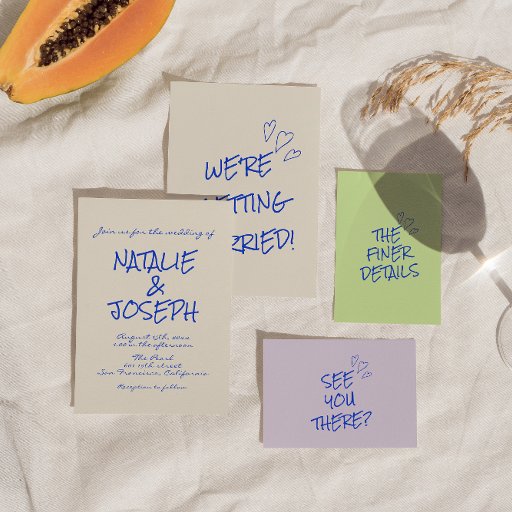 WE'RE
GETTING
MARRIED!
Join us for the wedding of
NATALIE
&
JOSEPH
August 15th, 20xx
1:00 in the afternoon
The Pearl
601 19th street
San Francisco, California
Reception to follow
THE
FINER
DETAILS
SEE
YOU
THERE?